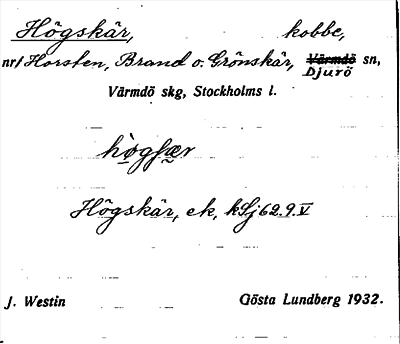 Högskär, kobbe,
nr1 Horsten, Brand o. Grönskär, Värmdö sn,
Djurö
Värmdö skg, Stockholms l.
Högskär, ek, kSj 62.9.V
J. Westin Gösta Lundberg 1932.